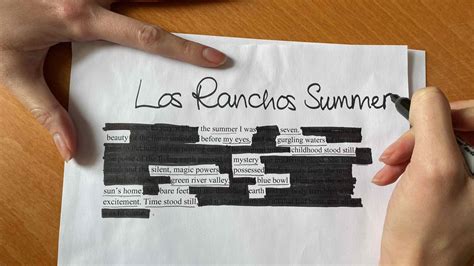 Los Ranchos Summer
the summer I was seven.
beauty before my eyes, gurgling waters
childhood stood still
mystery
silent, magic powers possessed
green river valley blue bowl
sun's home, bare feet earth
excitement. Time stood still